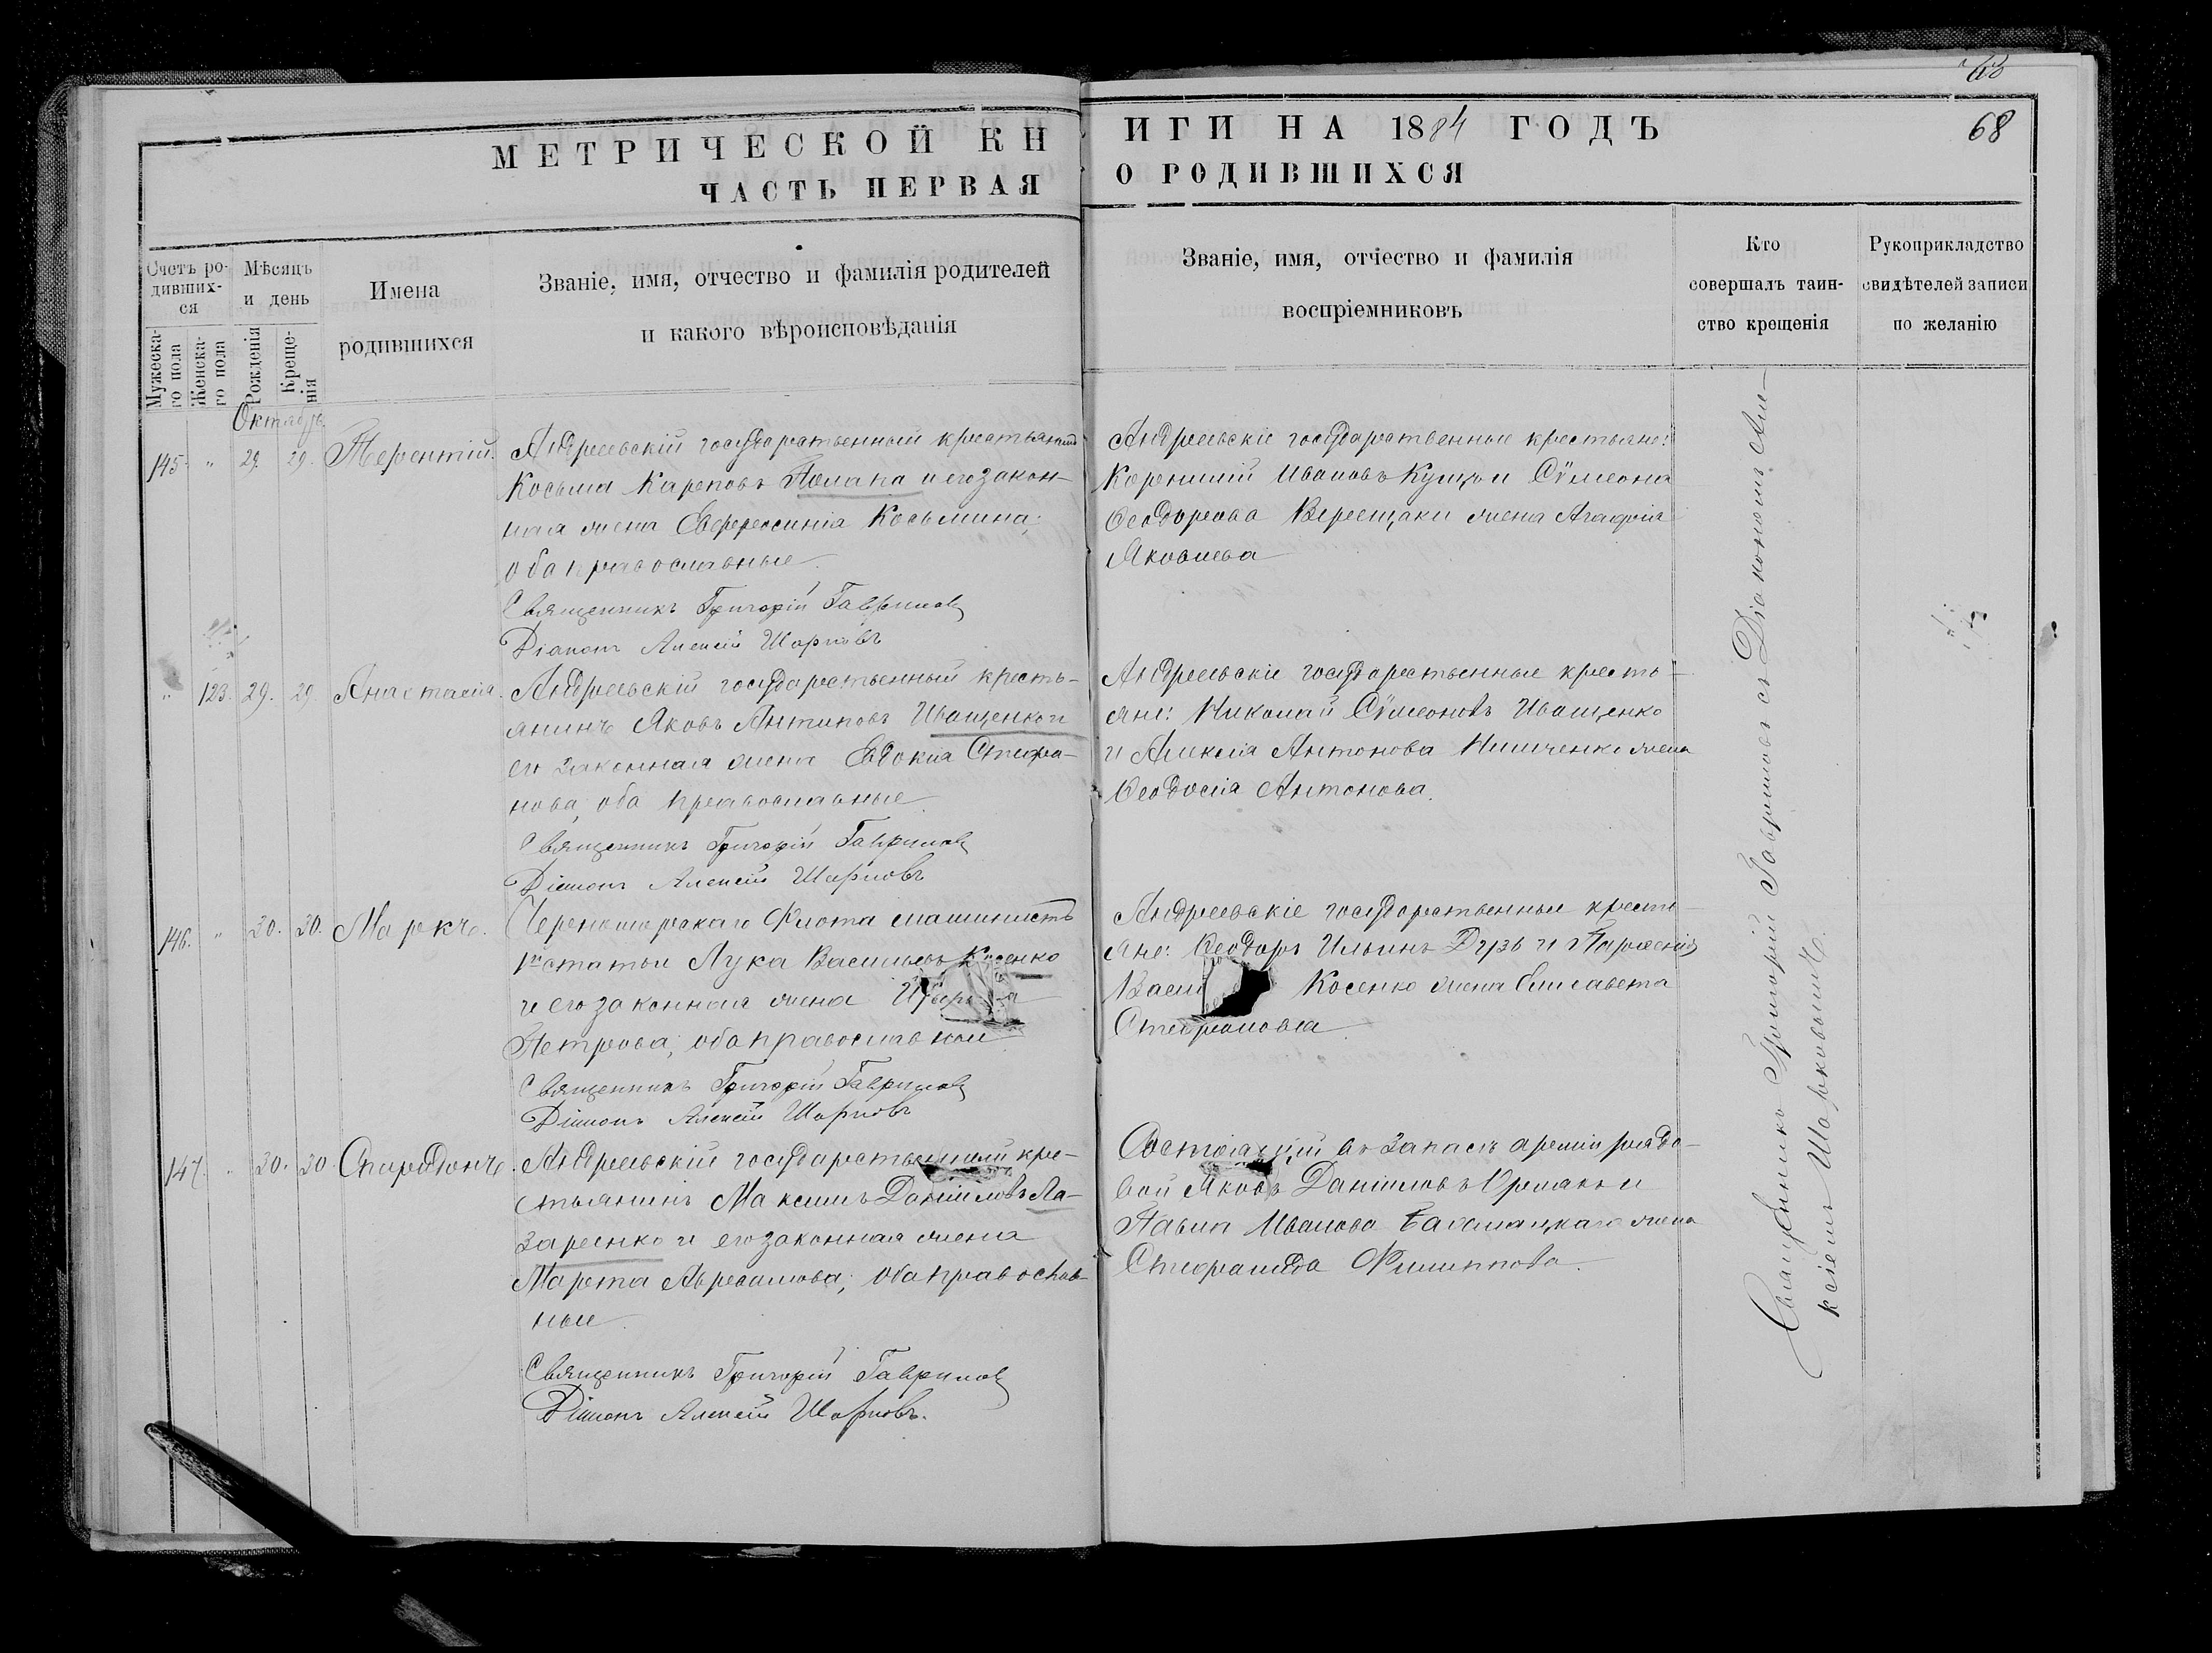 68
МЕТРИЧЕСКОЙ КНИГИ НА 1884 ГОДЪ
ЧАСТЬ ПЕРВАЯ О РОДИВШИХСЯ
Счетъ ро-
дивших-
ся
Мужеска-
го пола
Женска-
го пола
Мѣсяцъ
и день
Рожденія
Креще-
нія
Имена
родившихся
Званіе, имя, отчество и фамилія родителей
и какого вѣроисповѣданія
Званіе, имя, отчество и фамилія
воспріемниковъ
Кто
совершалъ таин-
ство крещенія
Рукоприкладство
свидѣтелей записи
по желанію
Октябрь
145. " 29. 29. Терентій.
Андреевскій государственный крестьянинъ
Косьма Карповъ и его закон-
ная жена Евфросинія Косьмина;
оба православные.
Священникъ Григорій Гавриловъ
Діаконъ Алексій
Андреевскіе государственные крестьяне:
Ивановъ и Сѵмеона
Ѳеодорова Верещаки жена Агафія
Яковлева
" 123. 29. 29. Анастасія.
Андреевскій государственный кресть-
янинъ Яковъ Антиповъ Иващенко и
его законная жена Евдокія Стефа-
нова, оба православные.
Священникъ Григорій Гавриловъ
Діаконъ Алексій
Андреевскіе государственные кресть-
яне: Николай Сѵмеоновъ Иващенко
и Алексія Антонова жена
Ѳеодосія Антонова.
146. " 30. 30. Маркъ.
Черноморскаго Флота машинистъ
1й статьи Лука Васильевъ Косенко
и его законная жена
Петрова; оба православные
Священникъ Григорій Гавриловъ
Діаконъ Алексій
Андреевскіе государственные кресть-
яне: Ѳеодоръ Ильинъ и
Косенко жена Елисавета
Стефанова
147. " 30. 30. Спиридонъ.
Андреевскій государственный кре-
стьянинъ Максимъ Даніиловъ Ла-
заренко и его законная жена
Марѳа Авраамова; оба православ-
ные.
Священникъ Григорій Гавриловъ
Діаконъ Алексій
Состоящій въ запасѣ арміи рядо-
вой Яковъ Даниловъ и
Павла Иванова жена
Стефанида Филиппова.
Священникъ Григорій Гавриловъ съ Діакономъ Але-
ксіемъ